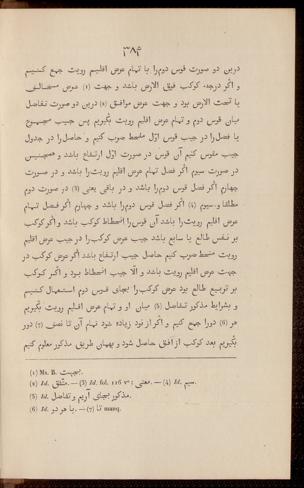 ٣٨٤
درين دو صورت قوس دوم را با تمام عرض اقليم رويت جمع كنيم
و اگر درجهٔ كوكب فوق الارض باشد و جهت (١) عرض مخالف
يا تحت الارض بود و جهت عرض موافق (٢) درين دو صورت تفاضل
ميان قوس دوم و تمام عرض اقليم رويت بگيريم پس جيب مجموع
يا فضل را در جيب قوس اوّل منحط ضرب كنيم و حاصل را در جدول
جيب مقوس كنيم آن قوس در صورت اوّل ارتفاع باشد و همچنين
در صورت سيم اگر فضل تمام عرض اقليم رويت را باشد و در صورت
چهارم اگر فضل قوس دوم را باشد و در باقى يعنى (3) در صورت دوم
مطلقا و سيوم (4) اگر فضل قوس دوم را باشد و چهارم اگر فضل تمام
عرض اقليم رويت را باشد آن قوس را انحطاط كوكب باشد و اگر كوكب
بر نفس طالع يا سابع باشد جيب عرض كوكب را در جيب عرض اقليم
رويت منحط ضرب كنيم حاصل جيب ارتفاع باشد اگر عرض كوكب در
جهت عرض اقليم رويت باشد و الّا جيب انحطاط بود و اگر كوكب
بر تربيع طالع بود عرض كوكب را بجاى قوس دوم استعمال كنيم
و بشرايط مذكور تفاضل (5) ميان او و تمام عرض اقليم رويت بگيريم
هر (6) دو را جمع كنيم و اگر از نود زياده شود تمام آن تا نصف (7) دور
بگيريم بعد كوكب از افق حاصل شود و بهمان طريق مذكور معلوم كنيم
(1) Ms. B. بجهت.
(2) Id. متّفق. — (3) Id. fol. 116 v°: معنى. — (4) Id. سيم.
(5) Id. مذكور بجاى آريم و تفاضل.
(6) Id. يا هر دو. — (7) تا manq.